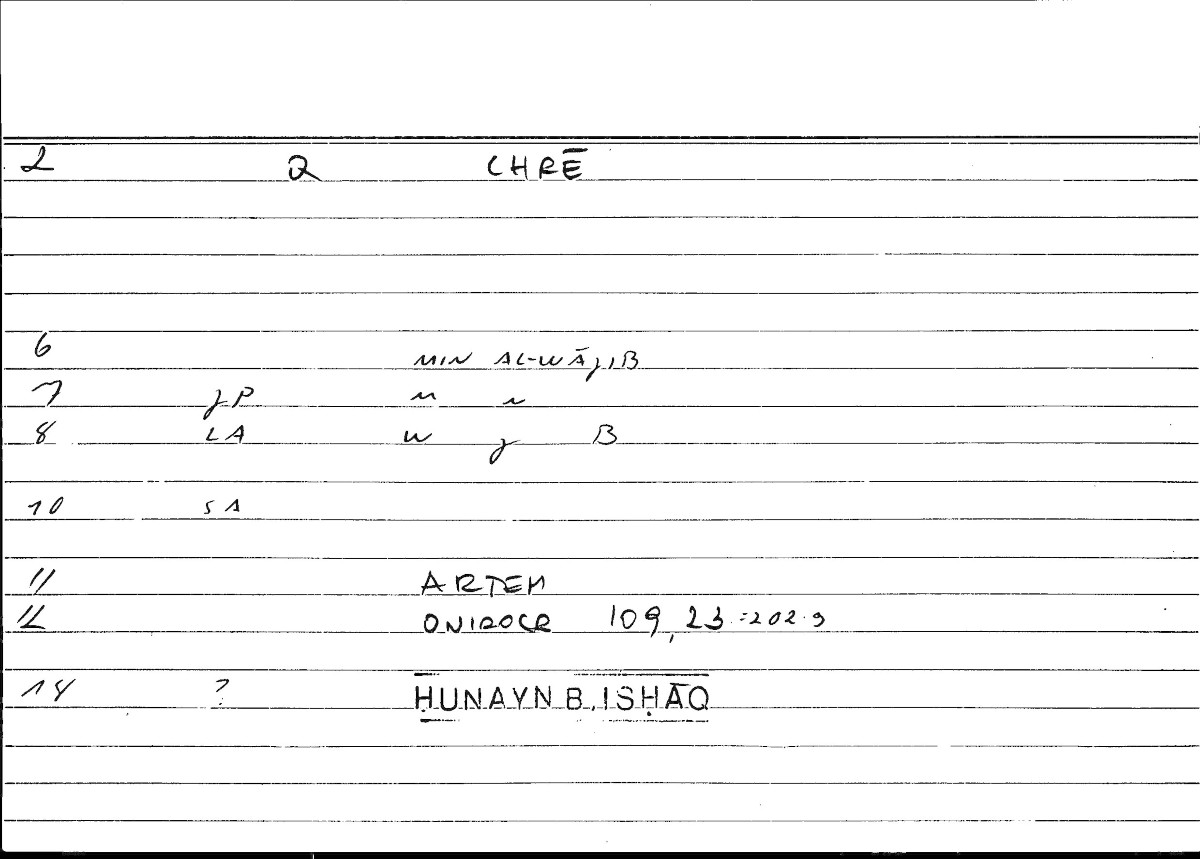 2 Q CHRĒ
6 MIN AL-WĀJIB
7 JP M N
8 LA W J B
10 SA
11 ARTEM
12 ONIROCR 109,23=202.9
14 ? ḤUNAYN B. ISḤĀQ